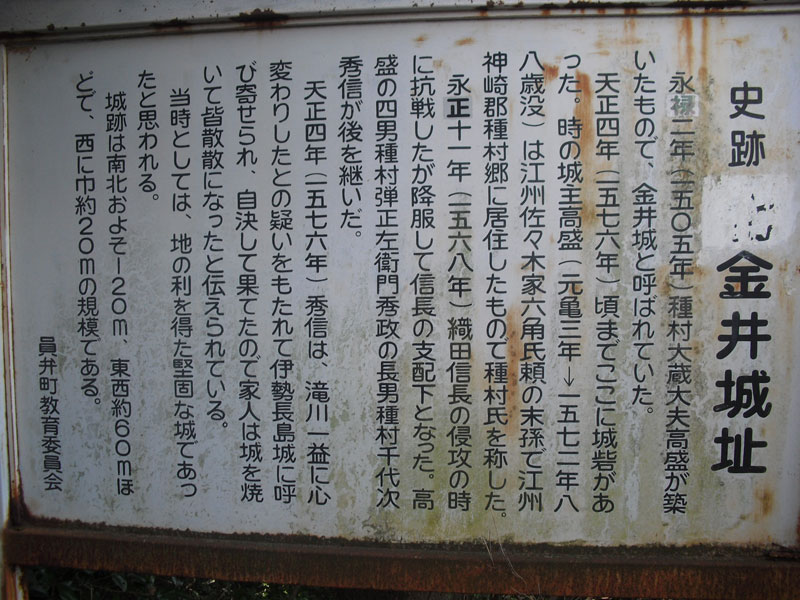 史跡 金井城址
永禄二年（一五〇五年）種村大蔵大夫高盛が築
いたもので、金井城と呼ばれていた。
天正四年（一五七六年）頃までここに城砦があ
った。時の城主高盛（元亀三年→一五七二年八
八歳没）は江州佐々木家六角氏頼の末孫で江州
神崎郡種村郷に居住したもので種村氏を称した。
永正十一年（一五六八年）織田信長の侵攻の時
に抗戦したが降服して信長の支配下となった。高
盛の四男種村弾正左衛門秀政の長男種村千代次
秀信が後を継いだ。
天正四年（一五七六年）秀信は、滝川一益に心
変わりしたとの疑いをもたれて伊勢長島城に呼
び寄せられ、自決して果てたので家人は城を焼
いて皆散散になったと伝えられている。
当時としては、地の利を得た堅固な城であっ
たと思われる。
城跡は南北およそ120m、東西約60mほ
どで、西に巾約20mの規模である。
員弁町教育委員会